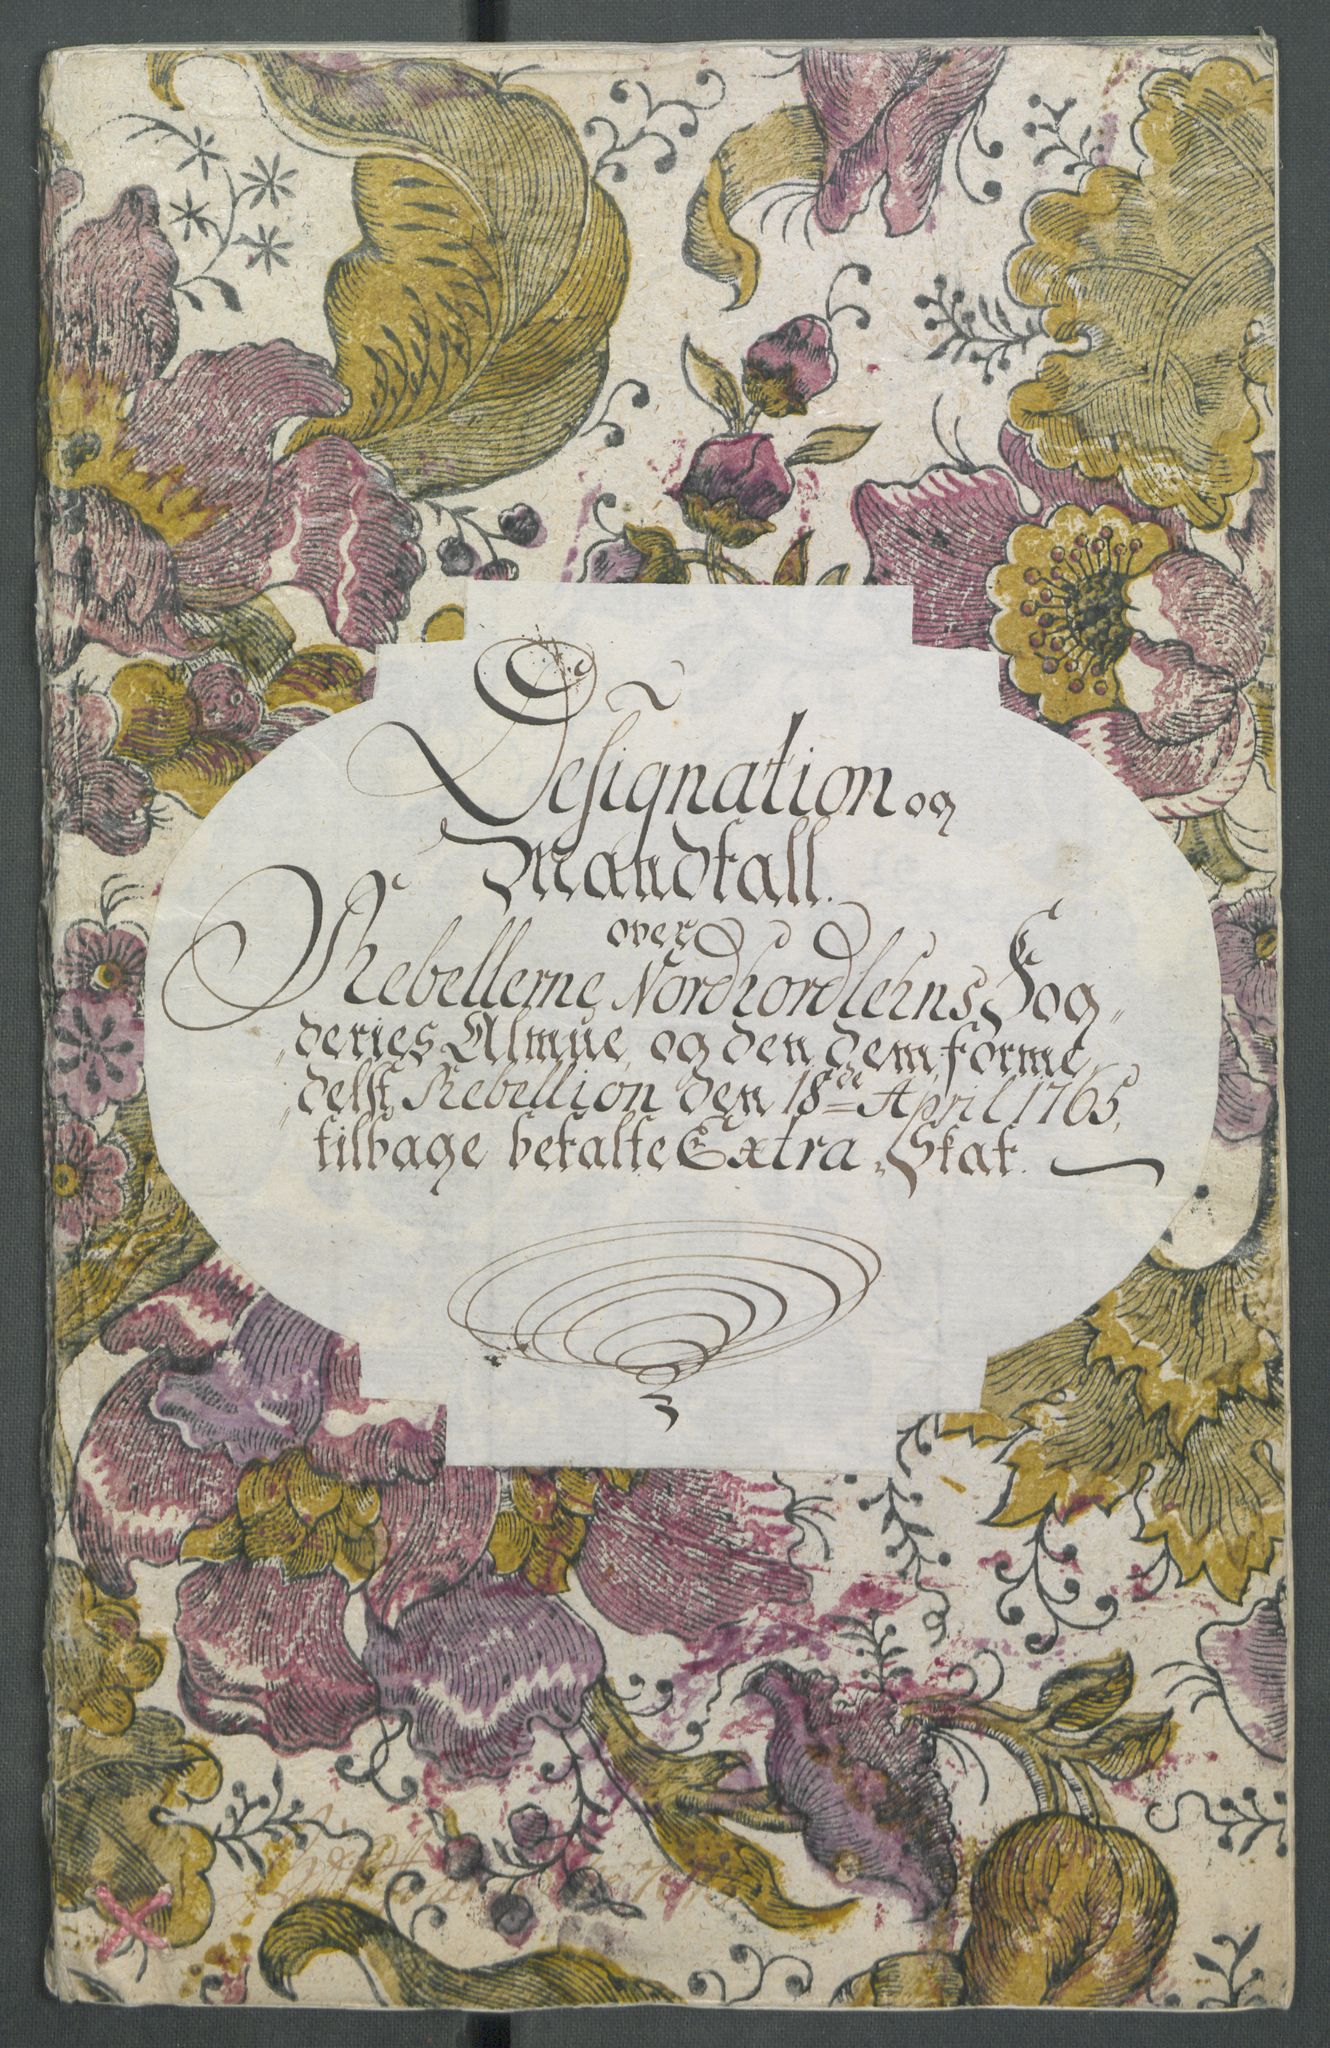 Designation og
Mandtall
over
Rebellerne, Nordhordlehns Fog„
„deries Almue, og den dem forme„
„delst Rebellion den 18de April 1765,
tilbage betalte Extra Skat.